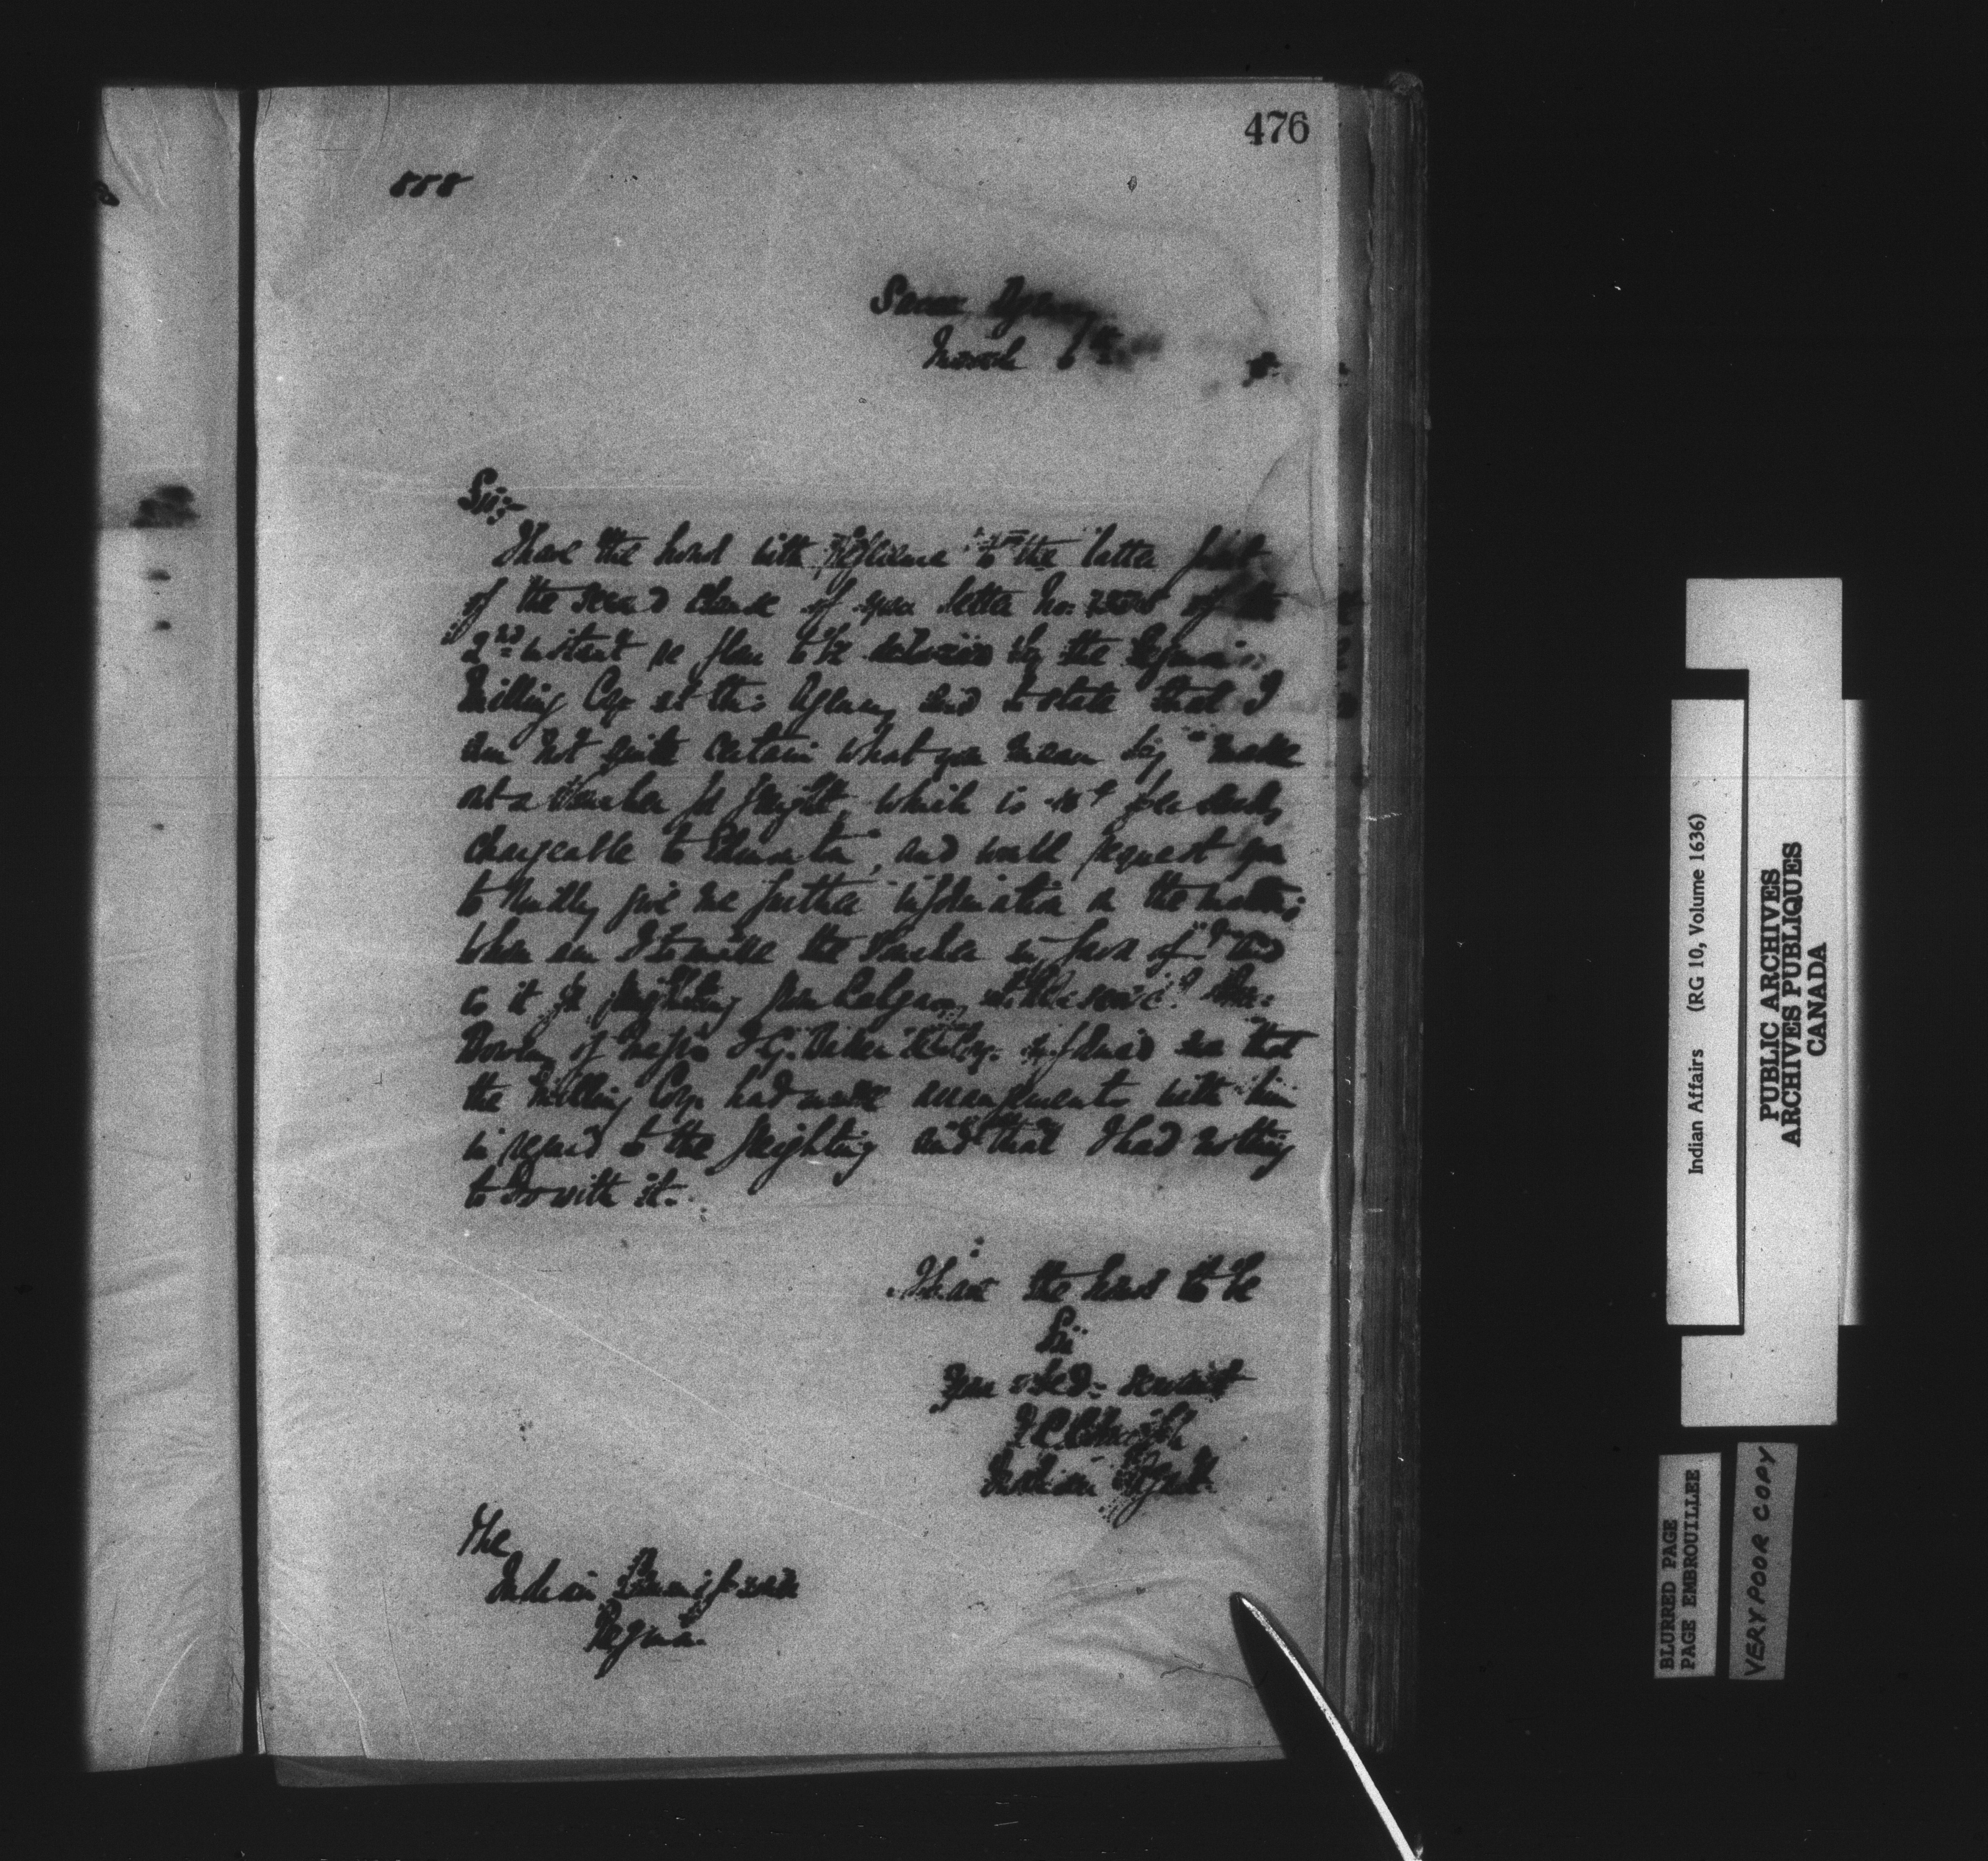 476
888
Sarcee Agency
March 6th
Sir,-
I have the honor with reference to the latter part
of the second clause of your letter No. of the
2nd instant re flour to be delivered by the
Milling Coy at this Agency and to state that I
am not quite certain what you mean by "make
out a voucher for freight which is per sack,
chargeable to", and would request you
to kindly give me further information on the matter;
whom am I to make the voucher in favor of and
is it for freighting from Calgary Mr.
of Messrs I. G. Baker & Coy. informed me that
the Milling Coy. had made arrangements with him
in regard to the freighting and that I had nothing
to do with it.
I have the honor to be
Sir
Your obed. servant
Indian Agent.
The
Indian Commissioner
Regina.
Indian Affairs (RG 10, Volume 1636)
PUBLIC ARCHIVES
ARCHIVES PUBLIQUES
CANADA
BLURRED PAGE
PAGE EMBROUILLEE
VERY POOR COPY